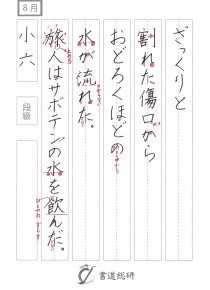 8月
小六
段級
ざっくりと
割れた傷口から
おどろくほどの
水が流れた。
旅人はサボテンの水を飲んだ。
書道総研